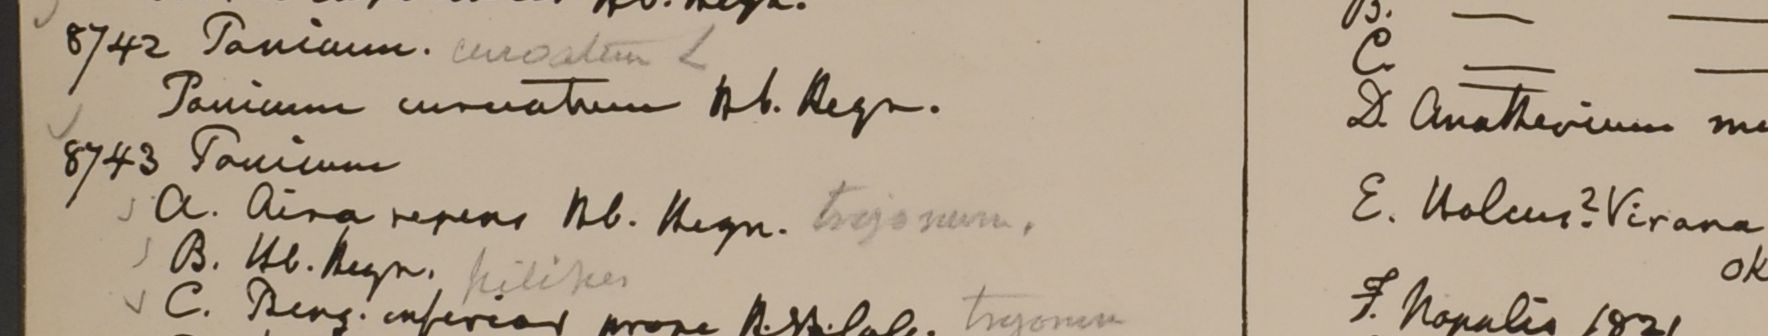 8742 Panicum. curvatum L
Panicum curvatum Hb. Heyn.
8743 Panicum
A. Aira repens Hb. Heyn. trigonum.
B. Hb. Heyn. pilipes
C. Beng. inferior prope trigonum
B.
C.
D. Anatherium
E. Holcus? Virana
F. Napalia 1821